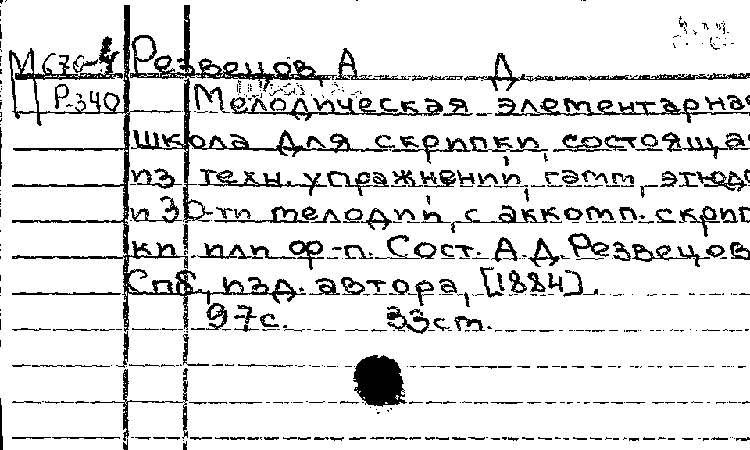 М 670-4 Резвецов, А Д
Р-340 Мелодическая элементарная
школа для скрипки, состоящая
из техн. упражнений, гамм, этюдо
и 30-ти мелодий, с аккомп. скрип
ки или ф-п. Сост. А.Д. Резвецов
Спб., изд. автора, [1884].
97с. 33см.